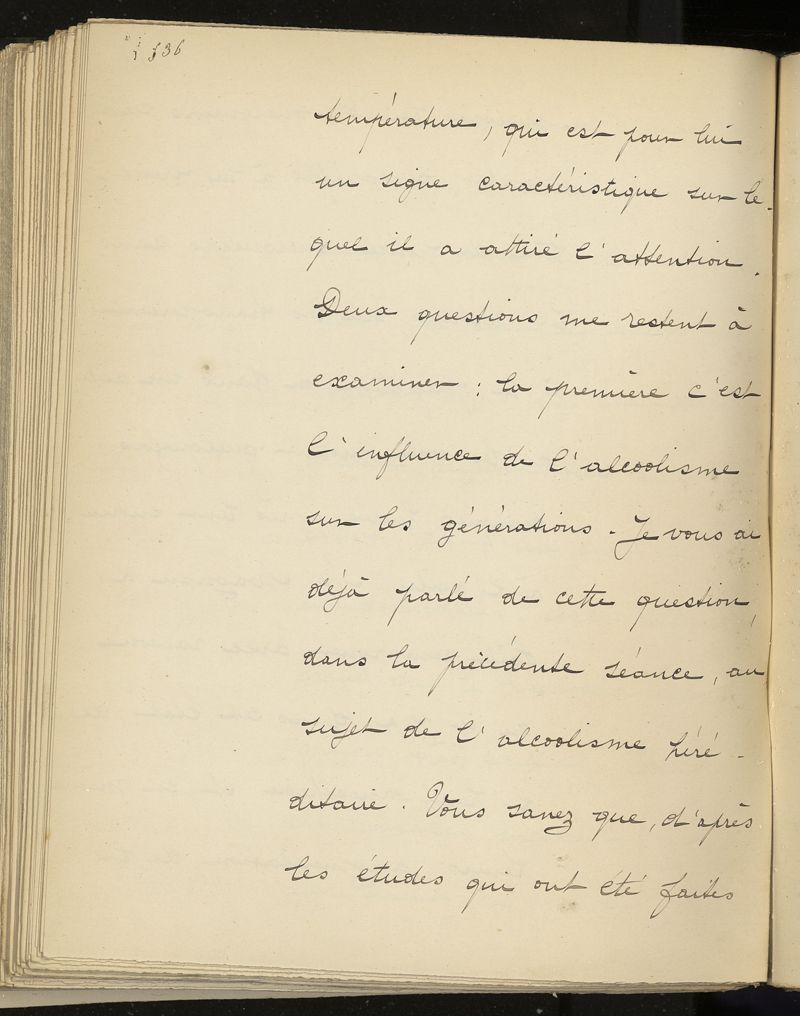 536
température, qui est pour lui
un signe caractéristique sur le-
quel il a attiré l'attention.
Deux questions me restent à
examiner : la première c'est
l'influence de l'alcoolisme
sur les générations. Je vous ai
déjà parlé de cette question,
dans la précédente séance, au
sujet de l'alcoolisme héré-
ditaire. Vous savez que, d'après
les études qui ont été faites